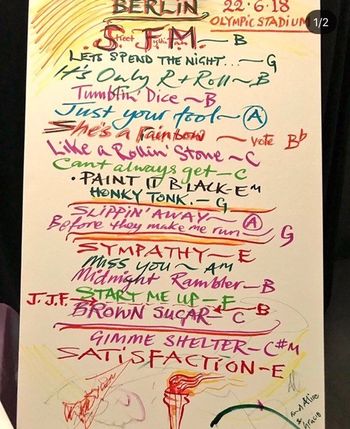 BERLIN
22·6·18
OLYMPIC STADIUM
1/2
S. F.M. — B
LETS SPEND THE NIGHT... — G
It's Only R+Roll — B
Tumblin' Dice — B
Just your fool — A
She's a Rainbow — vote Bb
Like a Rollin' Stone — C
Cant always get — C
• PAINT IT BLACK - Em
HONKY TONK. — G
SLIPPIN' AWAY — A
Before they make me run — G
SYMPATHY — E
Miss you — Am
Midnight Rambler — B
START ME UP — F
J.J.F. B
BROWN SUGAR — C
GIMME SHELTER — C#M
SATISFACTION — E